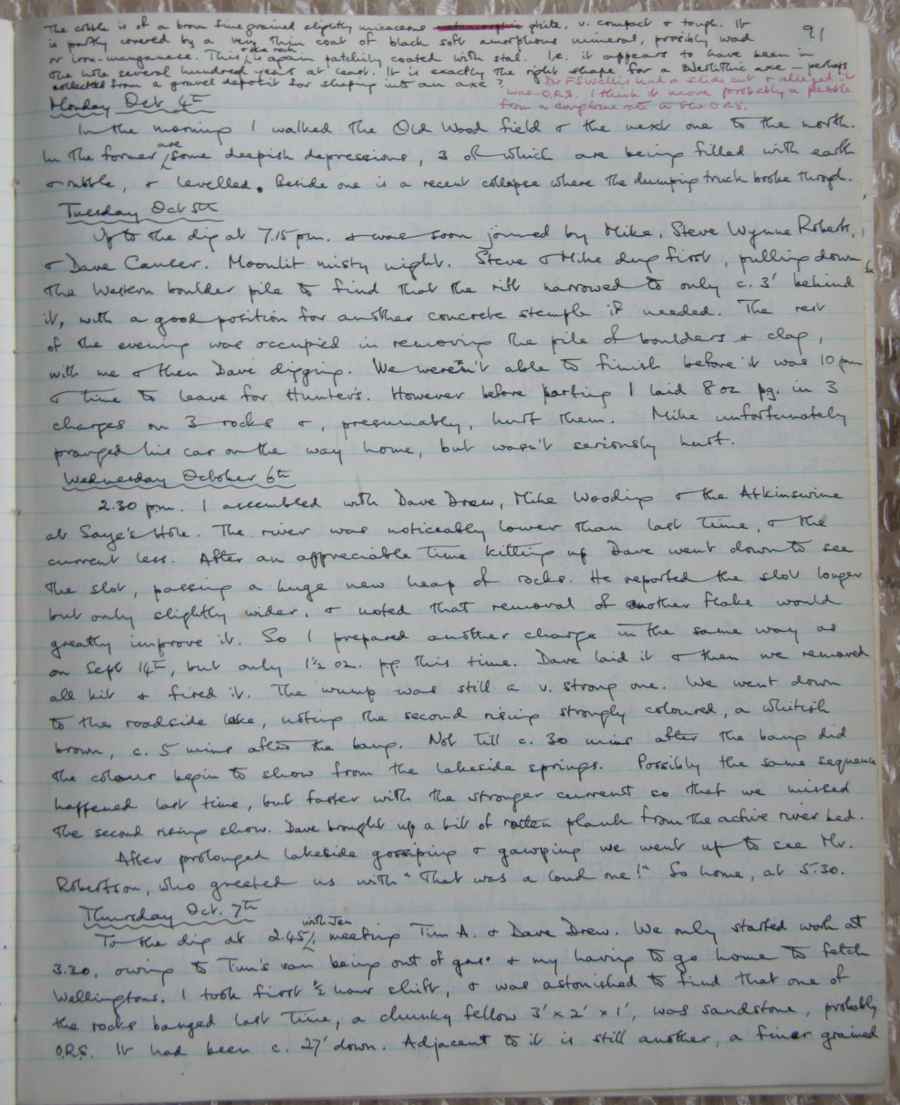 The cobble is of a brown fine grained slightly micaceous grite. v. compact & tough. It
91
is partly covered by a very thin coat of black soft amorphous mineral, possibly wad
or iron-manganese. This is again patchily coated with stal. I.e. it appears to have been in
the hole several hundred years at least. It is exactly the right shape for a Neolithic axe — perhaps
collected from a gravel deposit for shaping into an axe?
Dr F.S. Wallis had a slide cut & alleged it
was O.R.S. I think it more probably a pebble
from a conglomerate in the O.R.S.
Monday Oct 4th
In the morning I walked the Old Wood field & the next one to the north.
In the former are some deepish depressions, 3 of which are being filled with earth
& rubble, & levelled. Beside one is a recent collapse where the dumping truck broke through.
Tuesday Oct 5th
Up to the dig at 7.15 pm. & was soon joined by Mike, Steve Wynne Roberts,
& Dave Causer. Moonlit misty night. Steve & Mike dug first, pulling down
the Western boulder pile to find that the rift narrowed to only c. 3' behind
it, with a good position for another concrete stemple if needed. The rest
of the evening was occupied in removing the pile of boulders & clay,
with me & then Dave digging. We weren't able to finish before it was 10 pm
& time to leave for Hunter's. However before parting I laid 8 oz pg. in 3
charges on 3 rocks &, presumably, hurt them. Mike unfortunately
pranged his car on the way home, but wasn't seriously hurt.
Wednesday October 6th
2.30 pm. I assembled with Dave Drew, Mike Wooding & the Atkinswine
at Saye's Hole. The river was noticeably lower than last time, & the
current less. After an appreciable time kitting up Dave went down to see
the slot, passing a huge new heap of rocks. He reported the slot longer
but only slightly wider, & noted that removal of another flake would
greatly improve it. So I prepared another charge in the same way as
on Sept 14th, but only 1½ oz. pg this time. Dave laid it & then we removed
all kit & fired it. The wump was still a v. strong one. We went down
to the roadside lake, noting the second rising strongly coloured, a whitish
brown, c. 5 mins after the bang. Not till c. 30 mins after the bang did
the colour begin to show from the lakeside springs. Possibly the same sequence
happened last time, but faster with the stronger current so that we missed
the second rising show. Dave brought up a bit of rotten plank from the active river bed.
After prolonged lakeside gossiping & gawping we went up to see Mr.
Robertson, who greeted us with "That was a loud one!" So home, at 5.30.
Thursday Oct. 7th
To the dig at 2.45 with Jen, meeting Tim A. & Dave Drew. We only started work at
3.20, owing to Tim's van being out of gas & my having to go home to fetch
Wellingtons. I took first ½ hour shift, & was astonished to find that one of
the rocks banged last time, a chunky fellow 3' x 2' x 1', was sandstone, probably
O.R.S. It had been c. 27' down. Adjacent to it is still another, a finer grained